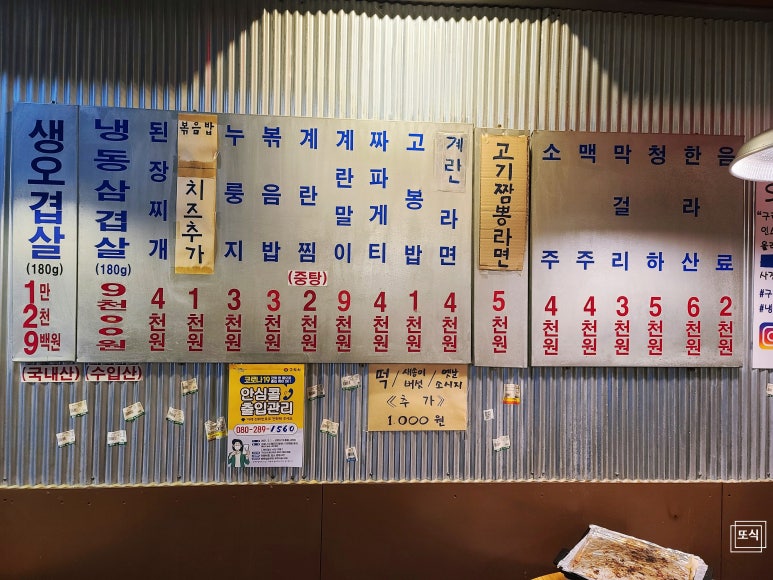 생오겹살
(180g)
1만
2천
9백원
(국내산)
냉동삼겹살
(180g)
9천00원
(수입산)
된장찌개
4천원
볶음밥
치즈추가
1천원
누룽지
3천원
볶음밥
3천원
계란찜
(중탕)
2천원
계란말이
9천원
짜파게티
4천원
고봉밥
1천원
계란
라면
4천원
고기짬뽕라면
5천원
소주
4천원
맥주
4천원
막걸리
3천원
청하
5천원
한라산
6천원
음료
2천원
코로나19
안심콜
출입관리
080-289-1560
떡/새송이버섯/옛날소시지
《추가》
1.000원
#구
#냉
또식